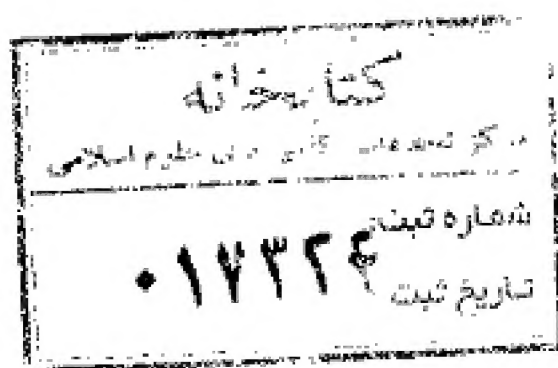 کتابخانه
مرکز تحقیقات کامپیوتری علوم اسلامی
شماره ثبت:
تاریخ ثبت: